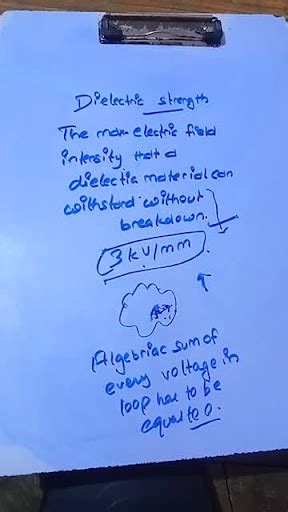 Dielectric strength
The max electric field
intensity that a
dielectia material can
withstand without
breakdown.
3 kV/mm
Algebriac sum of
every voltage in
loop has to be
equal to 0.